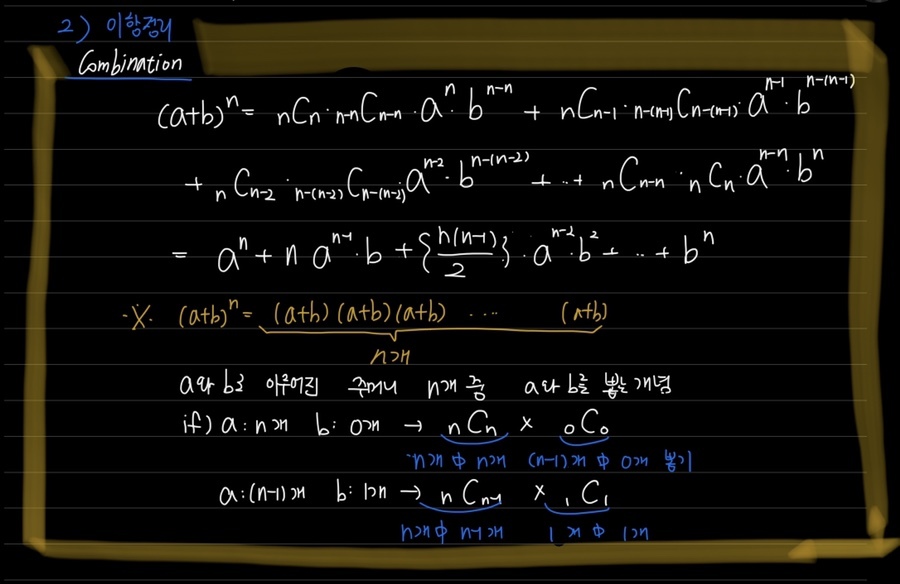 2) 이항정리
Combination
(a+b)ⁿ = nCn · n-nCn-n · aⁿ · bⁿ⁻ⁿ + nCn-1 · n-(n-1)Cn-(n-1) · aⁿ⁻¹ · bⁿ⁻⁽ⁿ⁻¹⁾
+ nCn-2 · n-(n-2)Cn-(n-2) aⁿ⁻² · bⁿ⁻⁽ⁿ⁻²⁾ + ·· + nCn-n · nCn · aⁿ⁻ⁿ · bⁿ
= aⁿ + n aⁿ⁻¹ · b + {n(n-1)/2} · aⁿ⁻² · b² + ·· + bⁿ
※ (a+b)ⁿ = (a+b) (a+b) (a+b) ... (a+b)
n개
a와 b로 이루어진 주머니 n개 중 a와 b를 뽑는 개념
if) a: n개 b: 0개 → nCn × 0C0
n개 中 n개 (n-1)개 中 0개 뽑기
a: (n-1)개 b: 1개 → nCn-1 × 1C1
n개 中 n-1개 1개 中 1개